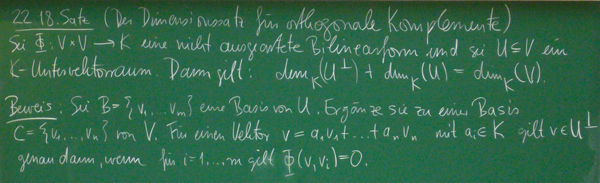 22.18. Satz (Der Dimensionssatz für orthogonale Komplemente)
Sei Φ: V×V → K eine nicht ausgeartete Bilinearform und sei U ⊆ V ein
K-Untervektorraum. Dann gilt: dim_K(U^⊥) + dim_K(U) = dim_K(V).
Beweis: Sei B = {v₁, ..., v_m} eine Basis von U. Ergänze sie zu einer Basis
C = {v₁, ..., v_n} von V. Für einen Vektor v = a₁v₁ + ... + a_n v_n mit a_i ∈ K gilt v ∈ U^⊥
genau dann, wenn für i = 1, ..., m gilt Φ(v, v_i) = 0.